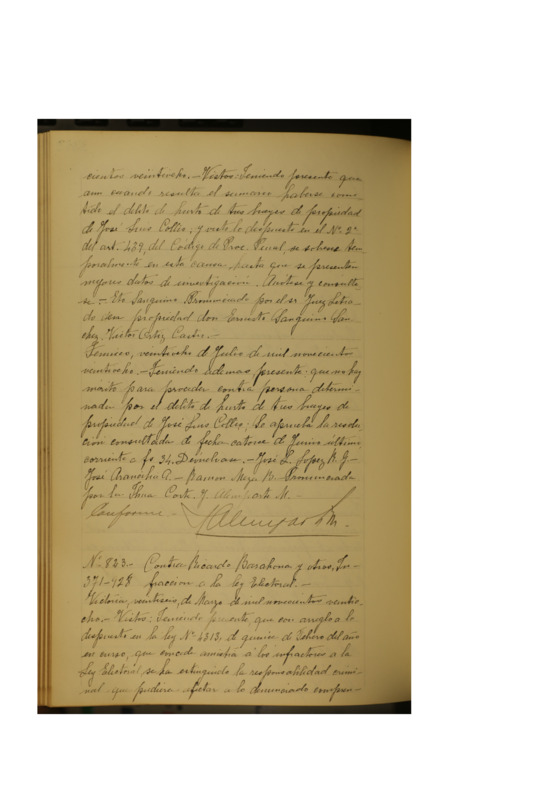 cientos veintiocho. - Vistos: Teniendo presente que
aun cuando resulta el sumario haberse come-
tido el delito de hurto de tres bueyes de propiedad
de José Luis Collio; y visto lo dispuesto en el No. 2o
del art. 439, del Código de Proc. Penal, se sobresee tem-
poralmente en esta causa hasta que se presenten
mejores datos de investigación. Anótese y consulte-
se. - Eto Sanguino. Pronunciado por el sr. Juez Letra-
do en propiedad don Ernesto Sanguino San-
chez. Victor Ortiz Castro. -
Temuco, veintiocho de Julio de mil novecientos
veintiocho. - Teniendo además presente: que no hay
mérito para proceder contra persona determi-
nada por el delito de hurto de tres bueyes de
propiedad de José Luis Collio; Se aprueba la resolu-
cion consultada de fecha catorce de Junio último
corriente a fs. 34. Devuélvase. - José L. Lopez
José Arancibia A. - Pronunciada
por la Iltma. Corte.
Conforme -
No. 823. - Contra Ricardo Barahona y otros, In-
371-928 fraccion a la ley Electoral. -
Victoria, veintiseis, de Marzo de mil novecientos veintio-
cho. - Vistos: Teniendo presente, que con arreglo a lo
dispuesto en la ley No. 4313, de quince de Febrero del año
en curso, que concede amnistia a los infractores a la
Ley Electoral se ha extinguido la responsabilidad crimi-
nal que pudiera afectar a lo denunciado compren-